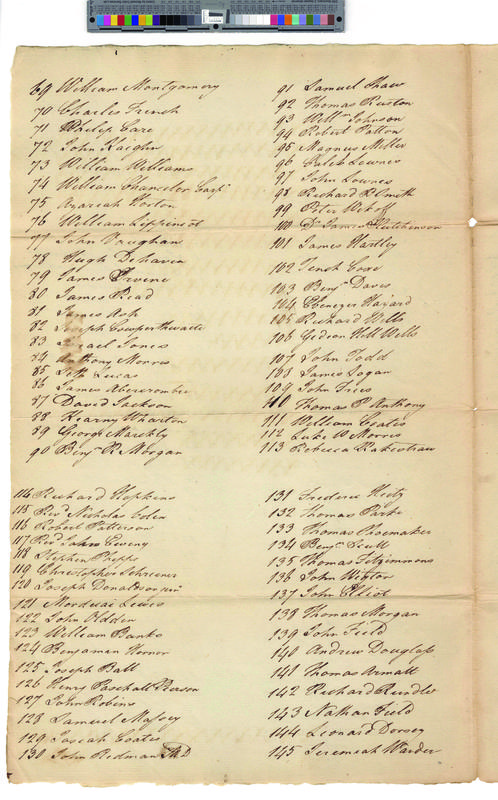 69 William Montgomery
70 Charles French
71 Philip Care
72 John Kaighn
73 William Williams
74 William Chancelor Esqr
75 Azariah Horton
76 William Lippincot
77 John Vaughan
78 Hugh DeHaven
79 James Irvine
80 James Read
81 James Ash
82 Joseph Cowperthwaite
83 Israel Jones
84 Anthony Morris
85 Seth Lucas
86 James Abercrombie
87 David Jackson
88 Kearny Wharton
89 George Marckly
90 Benjn R Morgan
91 Samuel Shaw
92 Thomas Ruston
93 Willm Johnson
94 Robert Patton
95 Magnus Miller
96 Caleb Lownes
97 John Lownes
98 Richard R Smith
99 Peter Wikoff
100 Dr James Hutchenson
101 James Hartley
102 Tench Coxe
103 Benjn Davis
104 Ebenezer Hazard
105 Richard Wells
106 Gideon Hill Wells
107 John Todd
108 James Logan
109 John Fries
110 Thomas P Anthony
111 William Coates
112 Luke W Morris
113 Rebecca Rakestraw
114 Richard Hopkins
115 Revd Nicholas Colin
116 Robert Patterson
117 Revd John Ewing
118 Stephen Phipps
119 Christopher
120 Joseph Donaldson junr
121 Mordecai Lewis
122 John Olden
123 William Banks
124 Benjaman Hornor
125 Joseph Ball
126 Henry Paschall Pearson
127 John Robins
128 Samuel Massey
129 Josiah Coates
130 John Redman MD
131 Frederic Heitz
132 Thomas Parke
133 Thomas Shoemaker
134 Benjn Scull
135 Thomas Fitzimmons
136 John Wigton
137 John Elliot
138 Thomas Morgan
139 John Field
140 Andrew Douglass
141 Thomas Armatt
142 Richard Rundle
143 Nathan Field
144 Leonard Dorsey
145 Jeremiah Warder